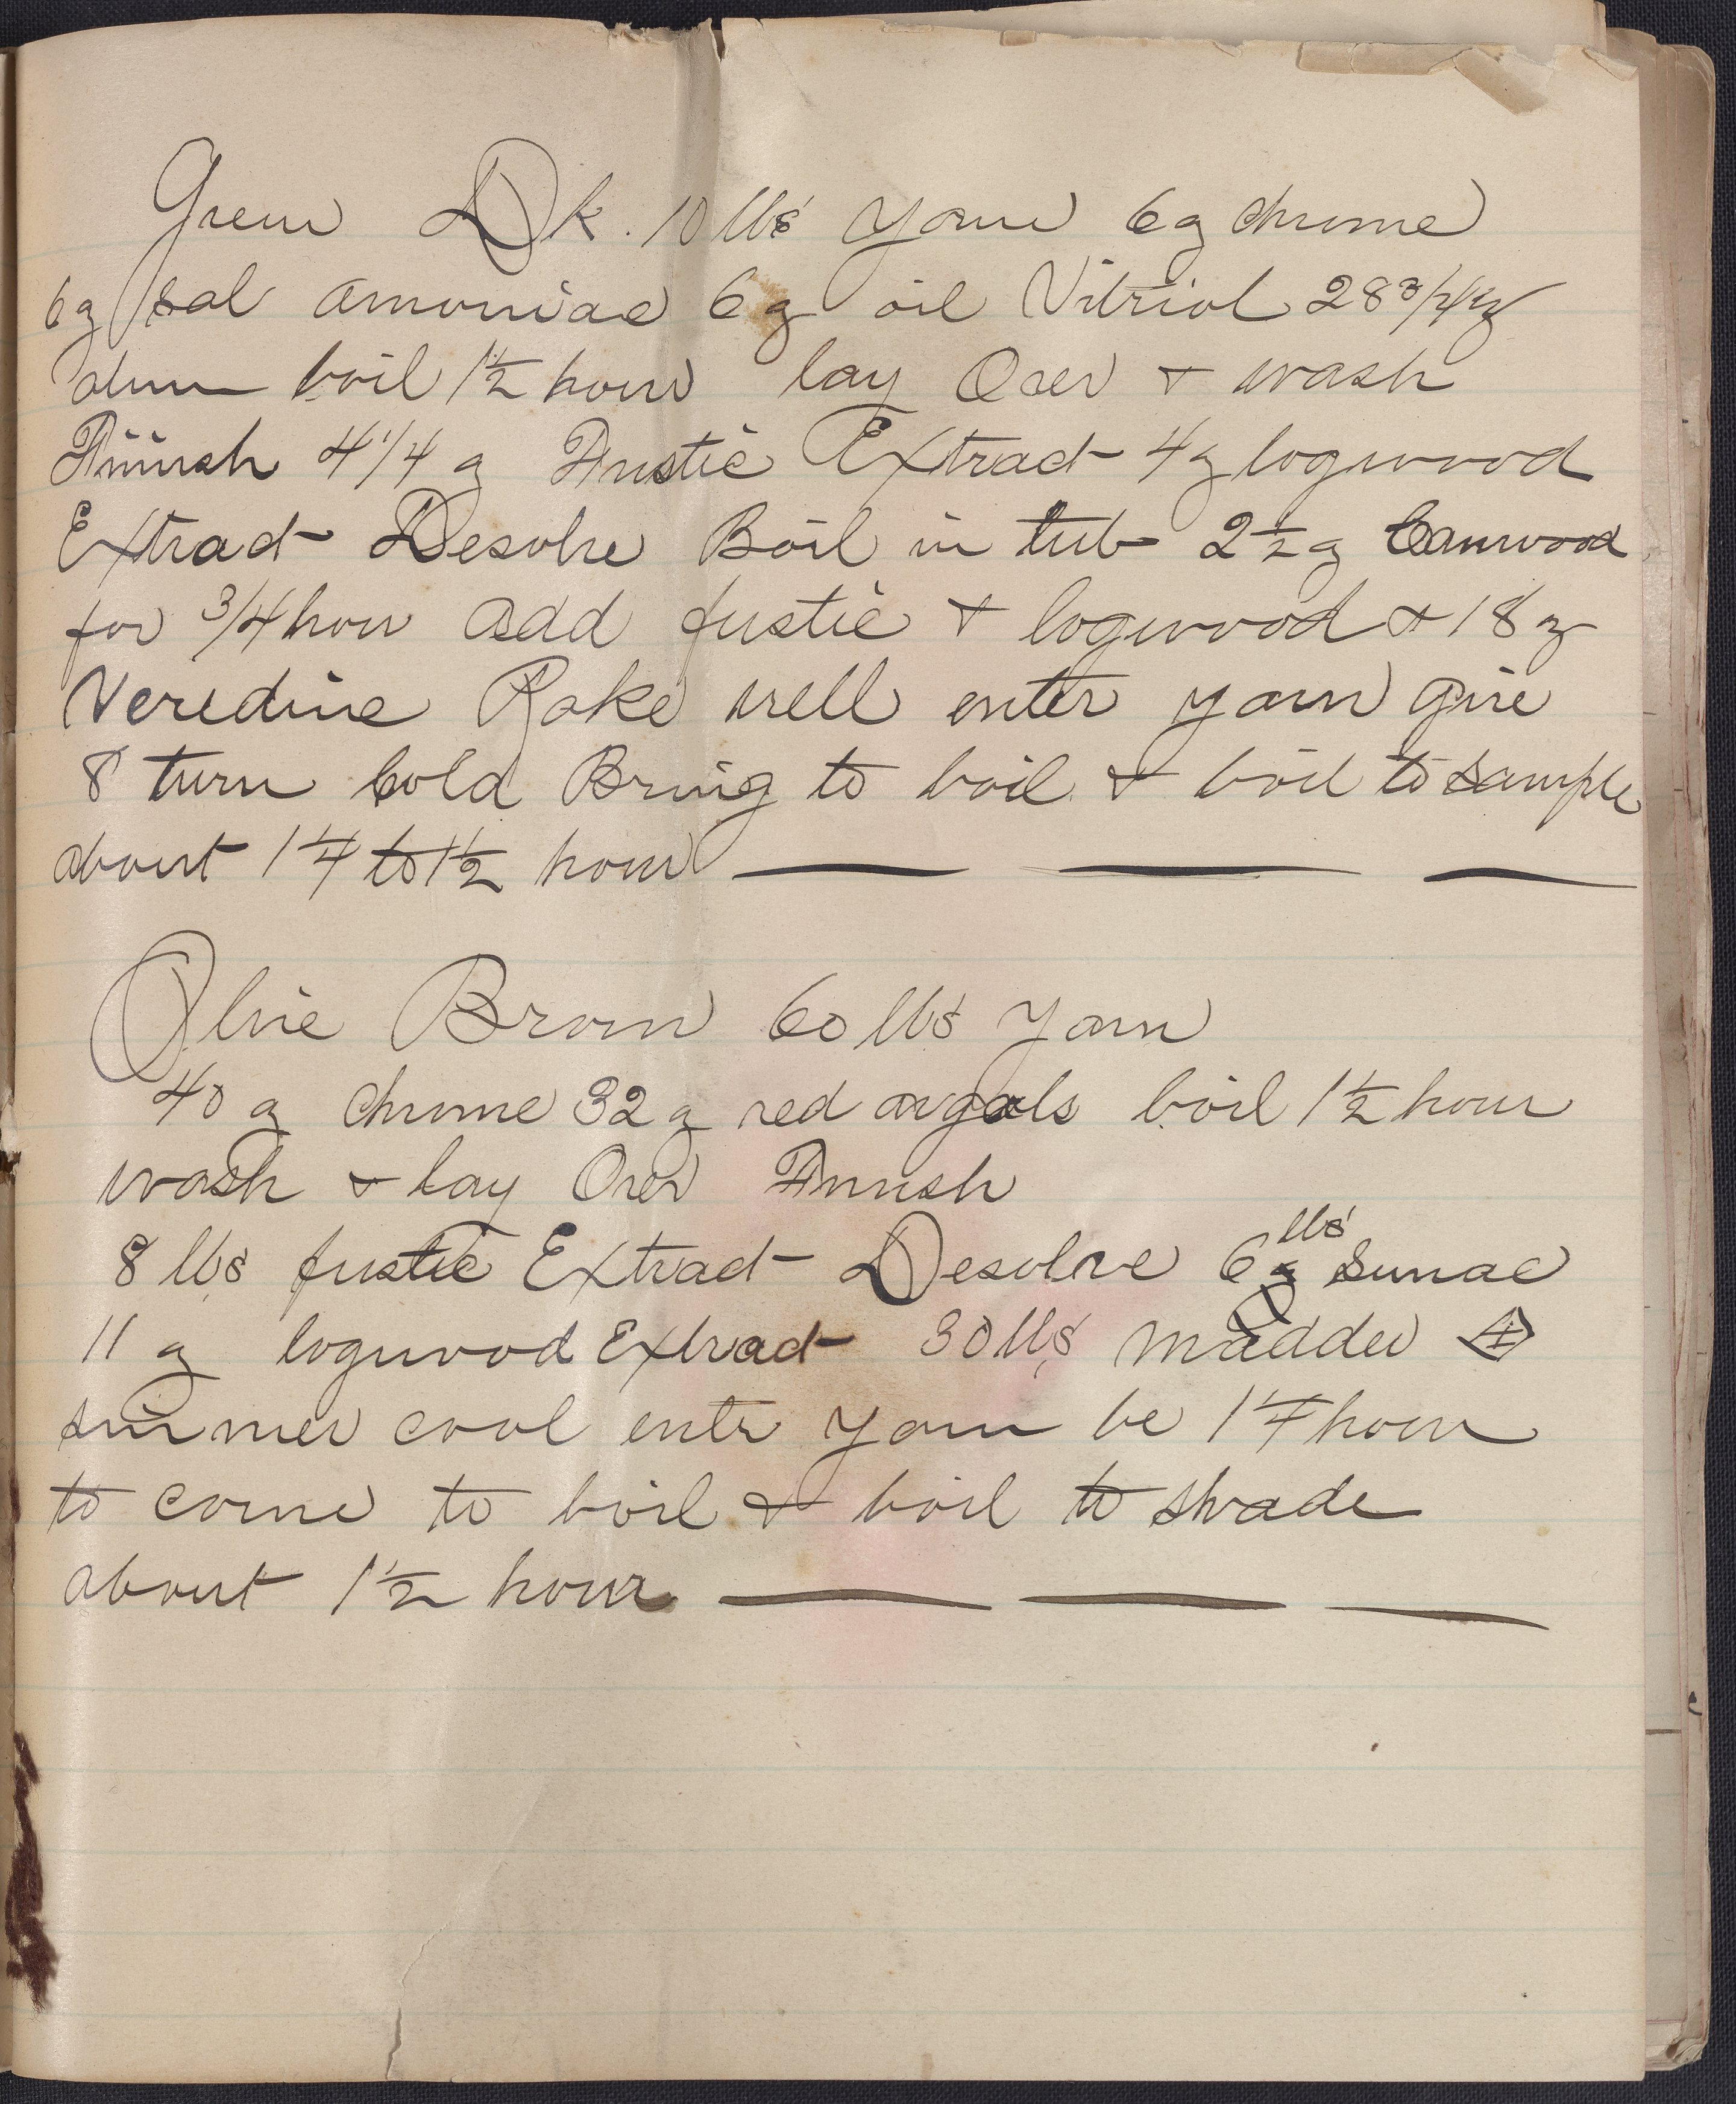 Green Dk. 10 lbs yarn 6 z chrome
6 z sal amoniac 6 z oil Vitriol 28 3/4 z
alum boil 1 1/2 hour lay Over & wash
Finish 4 1/4 z Fustic Extract 4 z logwood
Extract Desolve Boil in tub 2 1/2 z Camwood
for 3/4 hour add fustic & logwood & 18 z
Veredine Rake well enter yarn give
8 turn Cold Bring to boil & boil to sample
about 1 1/4 to 1 1/2 hour
Olive Brown 60 lbs yarn
40 z chrome 32 z red argals boil 1 1/2 hour
wash & lay Over Finish
8 lbs fustic Extract Desolve 6 lbs Sumac
11 z logwood Extract 30 lbs madder
simmer cool entr yarn be 1 1/4 hour
to come to boil & boil to shade
about 1 1/2 hour